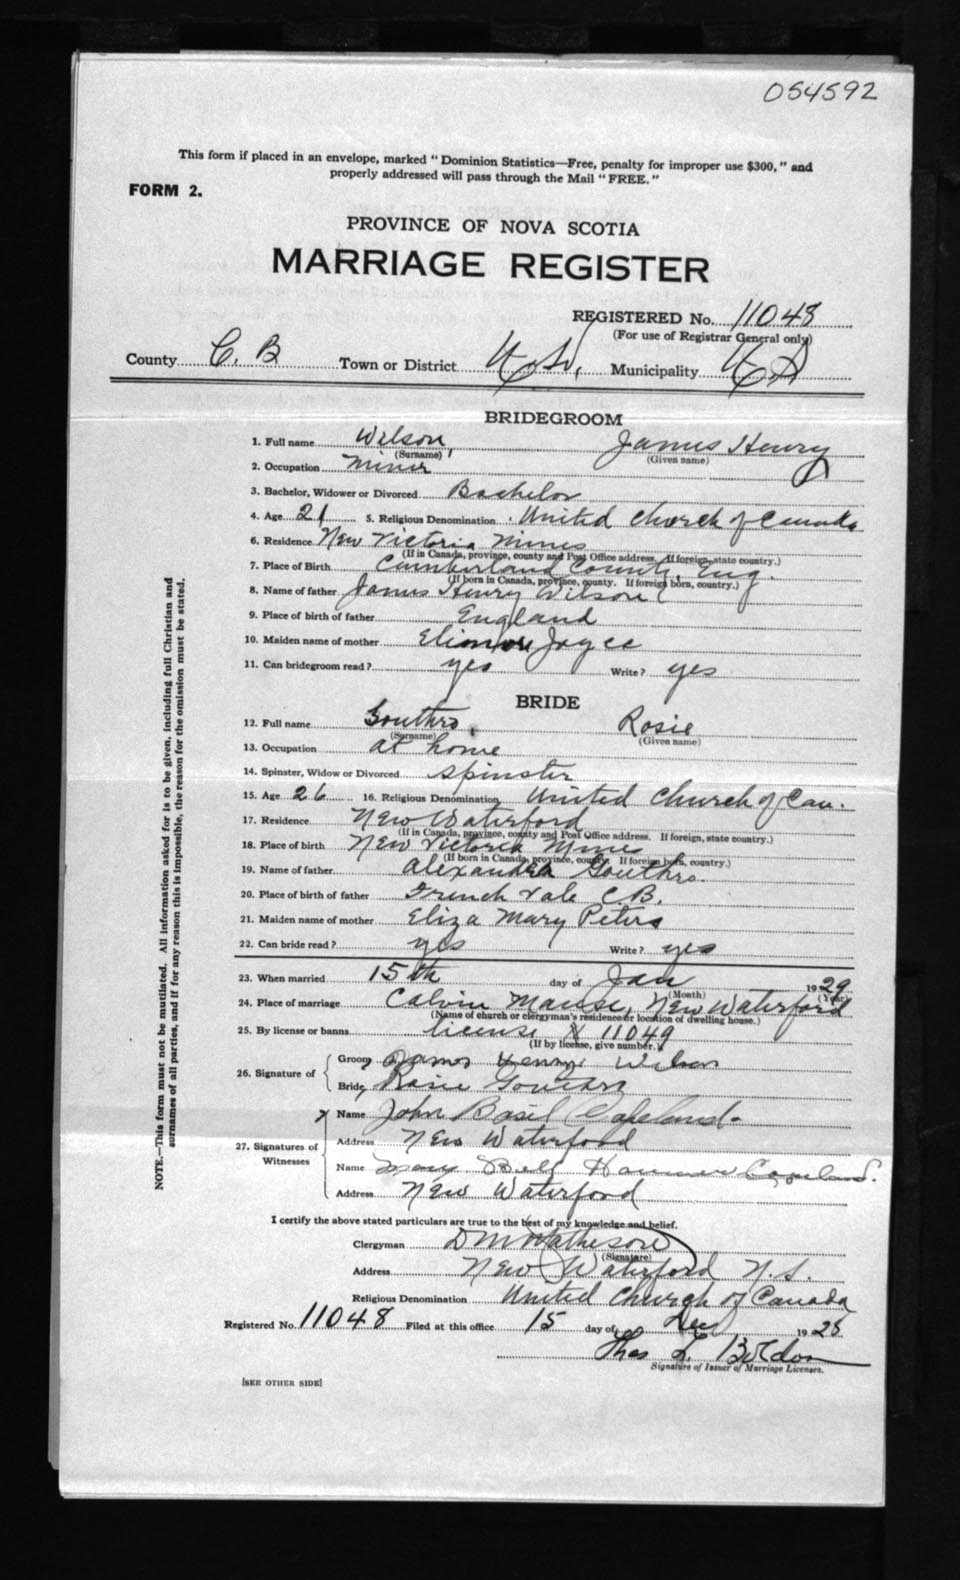 054592
This form if placed in an envelope, marked "Dominion Statistics—Free, penalty for improper use $300," and
properly addressed will pass through the Mail "FREE."
FORM 2.
PROVINCE OF NOVA SCOTIA
MARRIAGE REGISTER
REGISTERED No. 11048
(For use of Registrar General only)
County C. B Town or District Municipality
BRIDEGROOM
1. Full name Wilson, James Henry
(Surname) (Given name)
2. Occupation Miner
3. Bachelor, Widower or Divorced Bachelor
4. Age 21 5. Religious Denomination United Church of Canada
6. Residence New Victoria Mines
(If in Canada, province, county and Post Office address. If foreign, state country.)
7. Place of Birth Cumberland County, Eng.
(If born in Canada, province, county. If foreign born, country.)
8. Name of father James Henry Wilson
9. Place of birth of father England
10. Maiden name of mother Joyce
11. Can bridegroom read? yes Write? yes
BRIDE
12. Full name Gouthro. Rosie
(Surname) (Given name)
13. Occupation at home
14. Spinster, Widow or Divorced spinster
15. Age 26 16. Religious Denomination United Church of Can.
17. Residence New Waterford
(If in Canada, province, county and Post Office address. If foreign, state country.)
18. Place of birth New Victoria Mines
(If born in Canada, province, county. If foreign born, country.)
19. Name of father Alexander Gouthro.
20. Place of birth of father French Vale C.B.
21. Maiden name of mother Eliza Mary Peters
22. Can bride read? yes Write? yes
23. When married 15th day of Jan 1929
(Month) (Year)
24. Place of marriage Calvin Manse, New Waterford
(Name of church or clergyman's residence or location of dwelling house.)
25. By license or banns license X 11049
(If by license, give number.)
26. Signature of
Groom James Henry Wilson
Bride, Rosie Gouthro
27. Signatures of
Witnesses
Name John Basil Copeland
Address New Waterford
Name Mary Bell Copeland.
Address New Waterford
I certify the above stated particulars are true to the best of my knowledge and belief.
Clergyman D M Matheson
(Signature)
Address New Waterford N.S.
Religious Denomination United Church of Canada
Registered No. 11048 Filed at this office 15 day of Dec 1928
Thos L.
Signature of Issuer of Marriage Licenses.
[SEE OTHER SIDE]
NOTE.—This form must not be mutilated. All information asked for is to be given, including full Christian and
surnames of all parties, and if for any reason this is impossible, the reason for the omission must be stated.